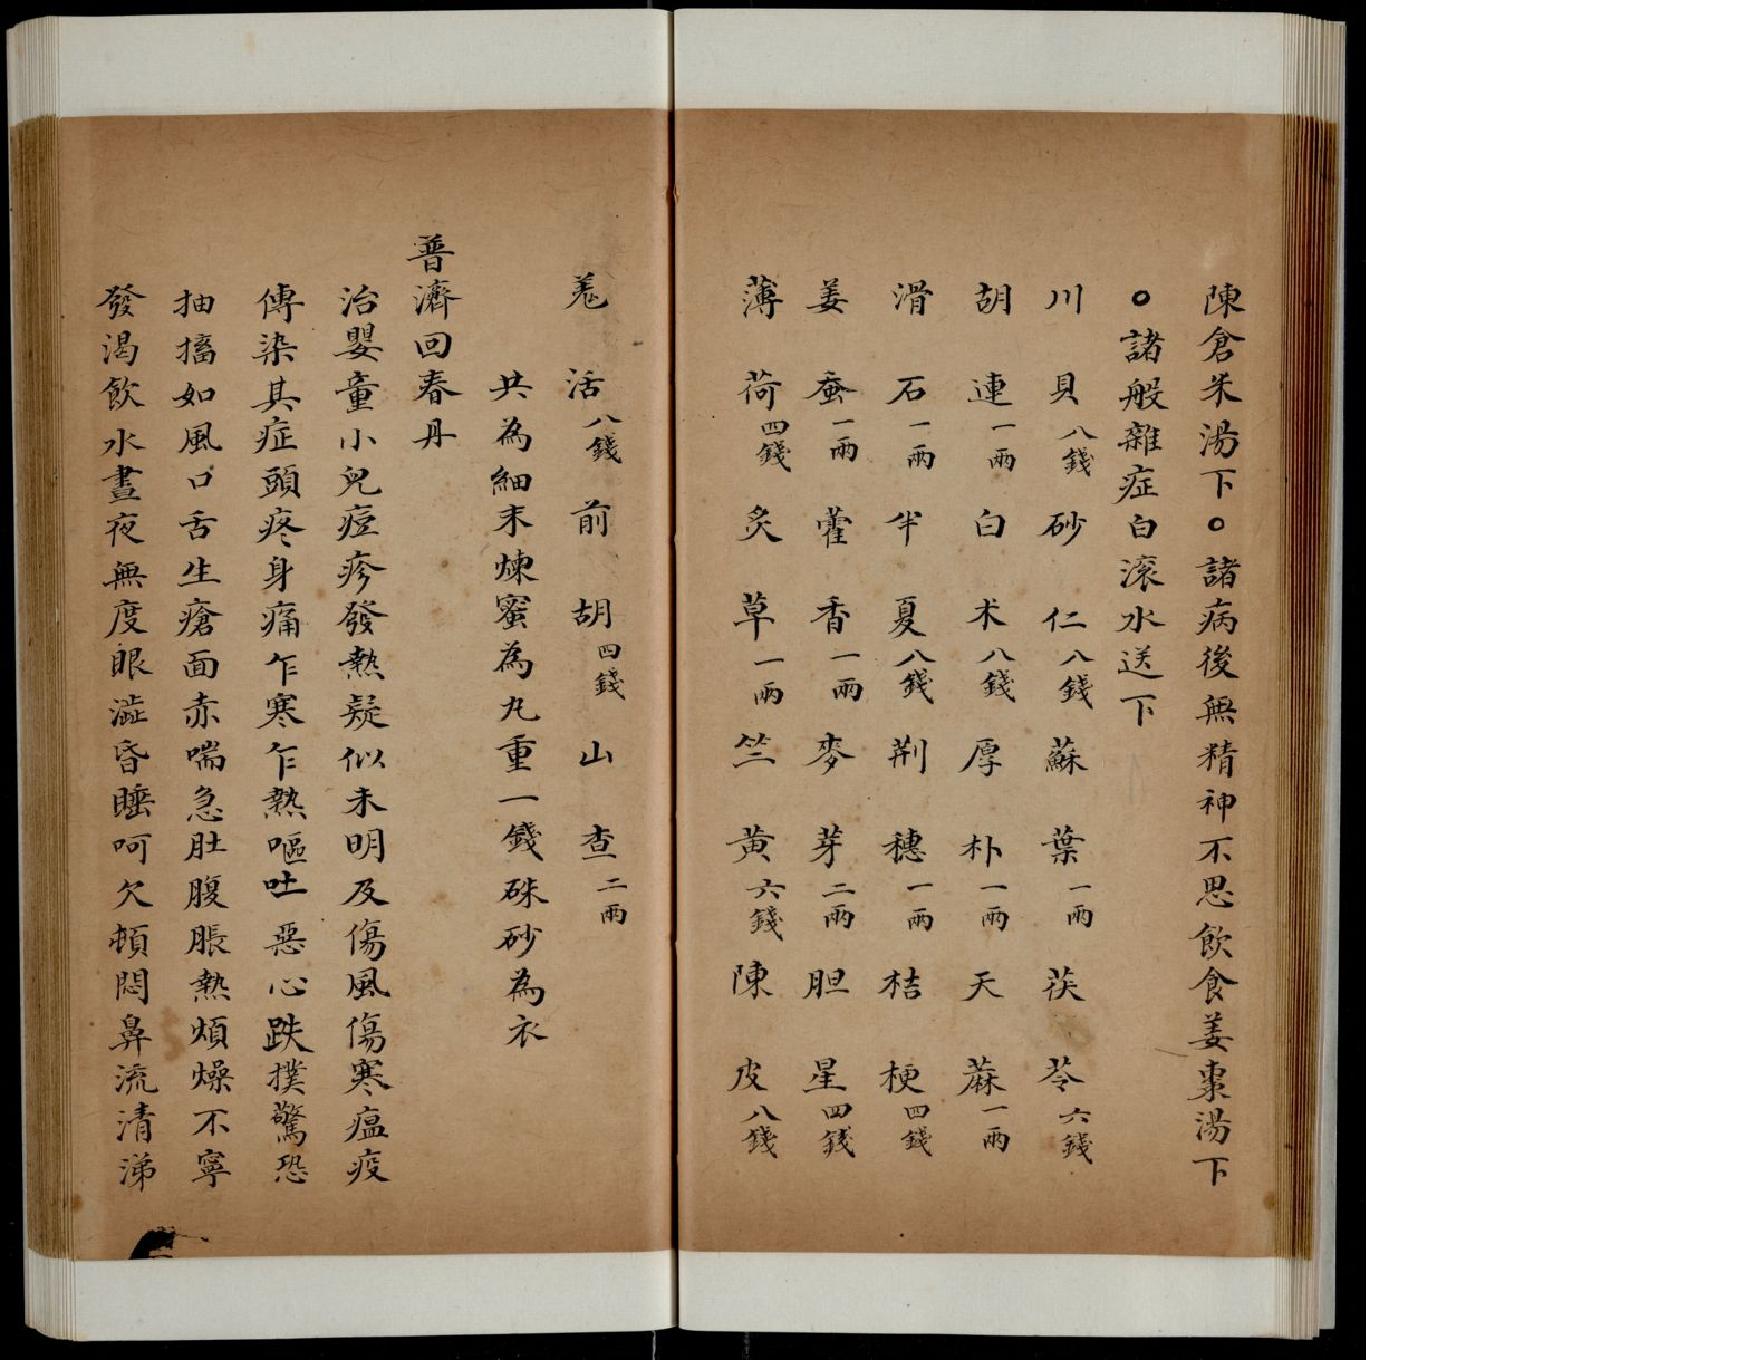 陳倉米湯下○諸病後無精神不思飲食姜棗湯下
○諸般雜症白滚水送下
川貝八錢砂仁八錢蘇葉一兩茯苓六錢
胡連一兩白术八錢厚朴一兩天蔴一兩
滑石一兩半夏八錢荆穗一兩桔梗四錢
姜蚕一兩藿香一兩麥芽二兩胆星四錢
薄荷四錢炙草一兩竺黄六錢陳皮八錢
羗活八錢前胡四錢山查二兩
共為細末煉蜜為丸重一錢硃砂為衣
普濟回春丹
治嬰童小兒痘疹發熱疑似未明及傷風傷寒瘟疫
傳染其症頭疼身痛乍寒乍熱嘔吐惡心跌撲驚恐
抽搐如風口舌生瘡面赤喘急肚腹脹熱煩燥不寧
發渴飲水晝夜無度眼澁昏睡呵欠頓悶鼻流清涕